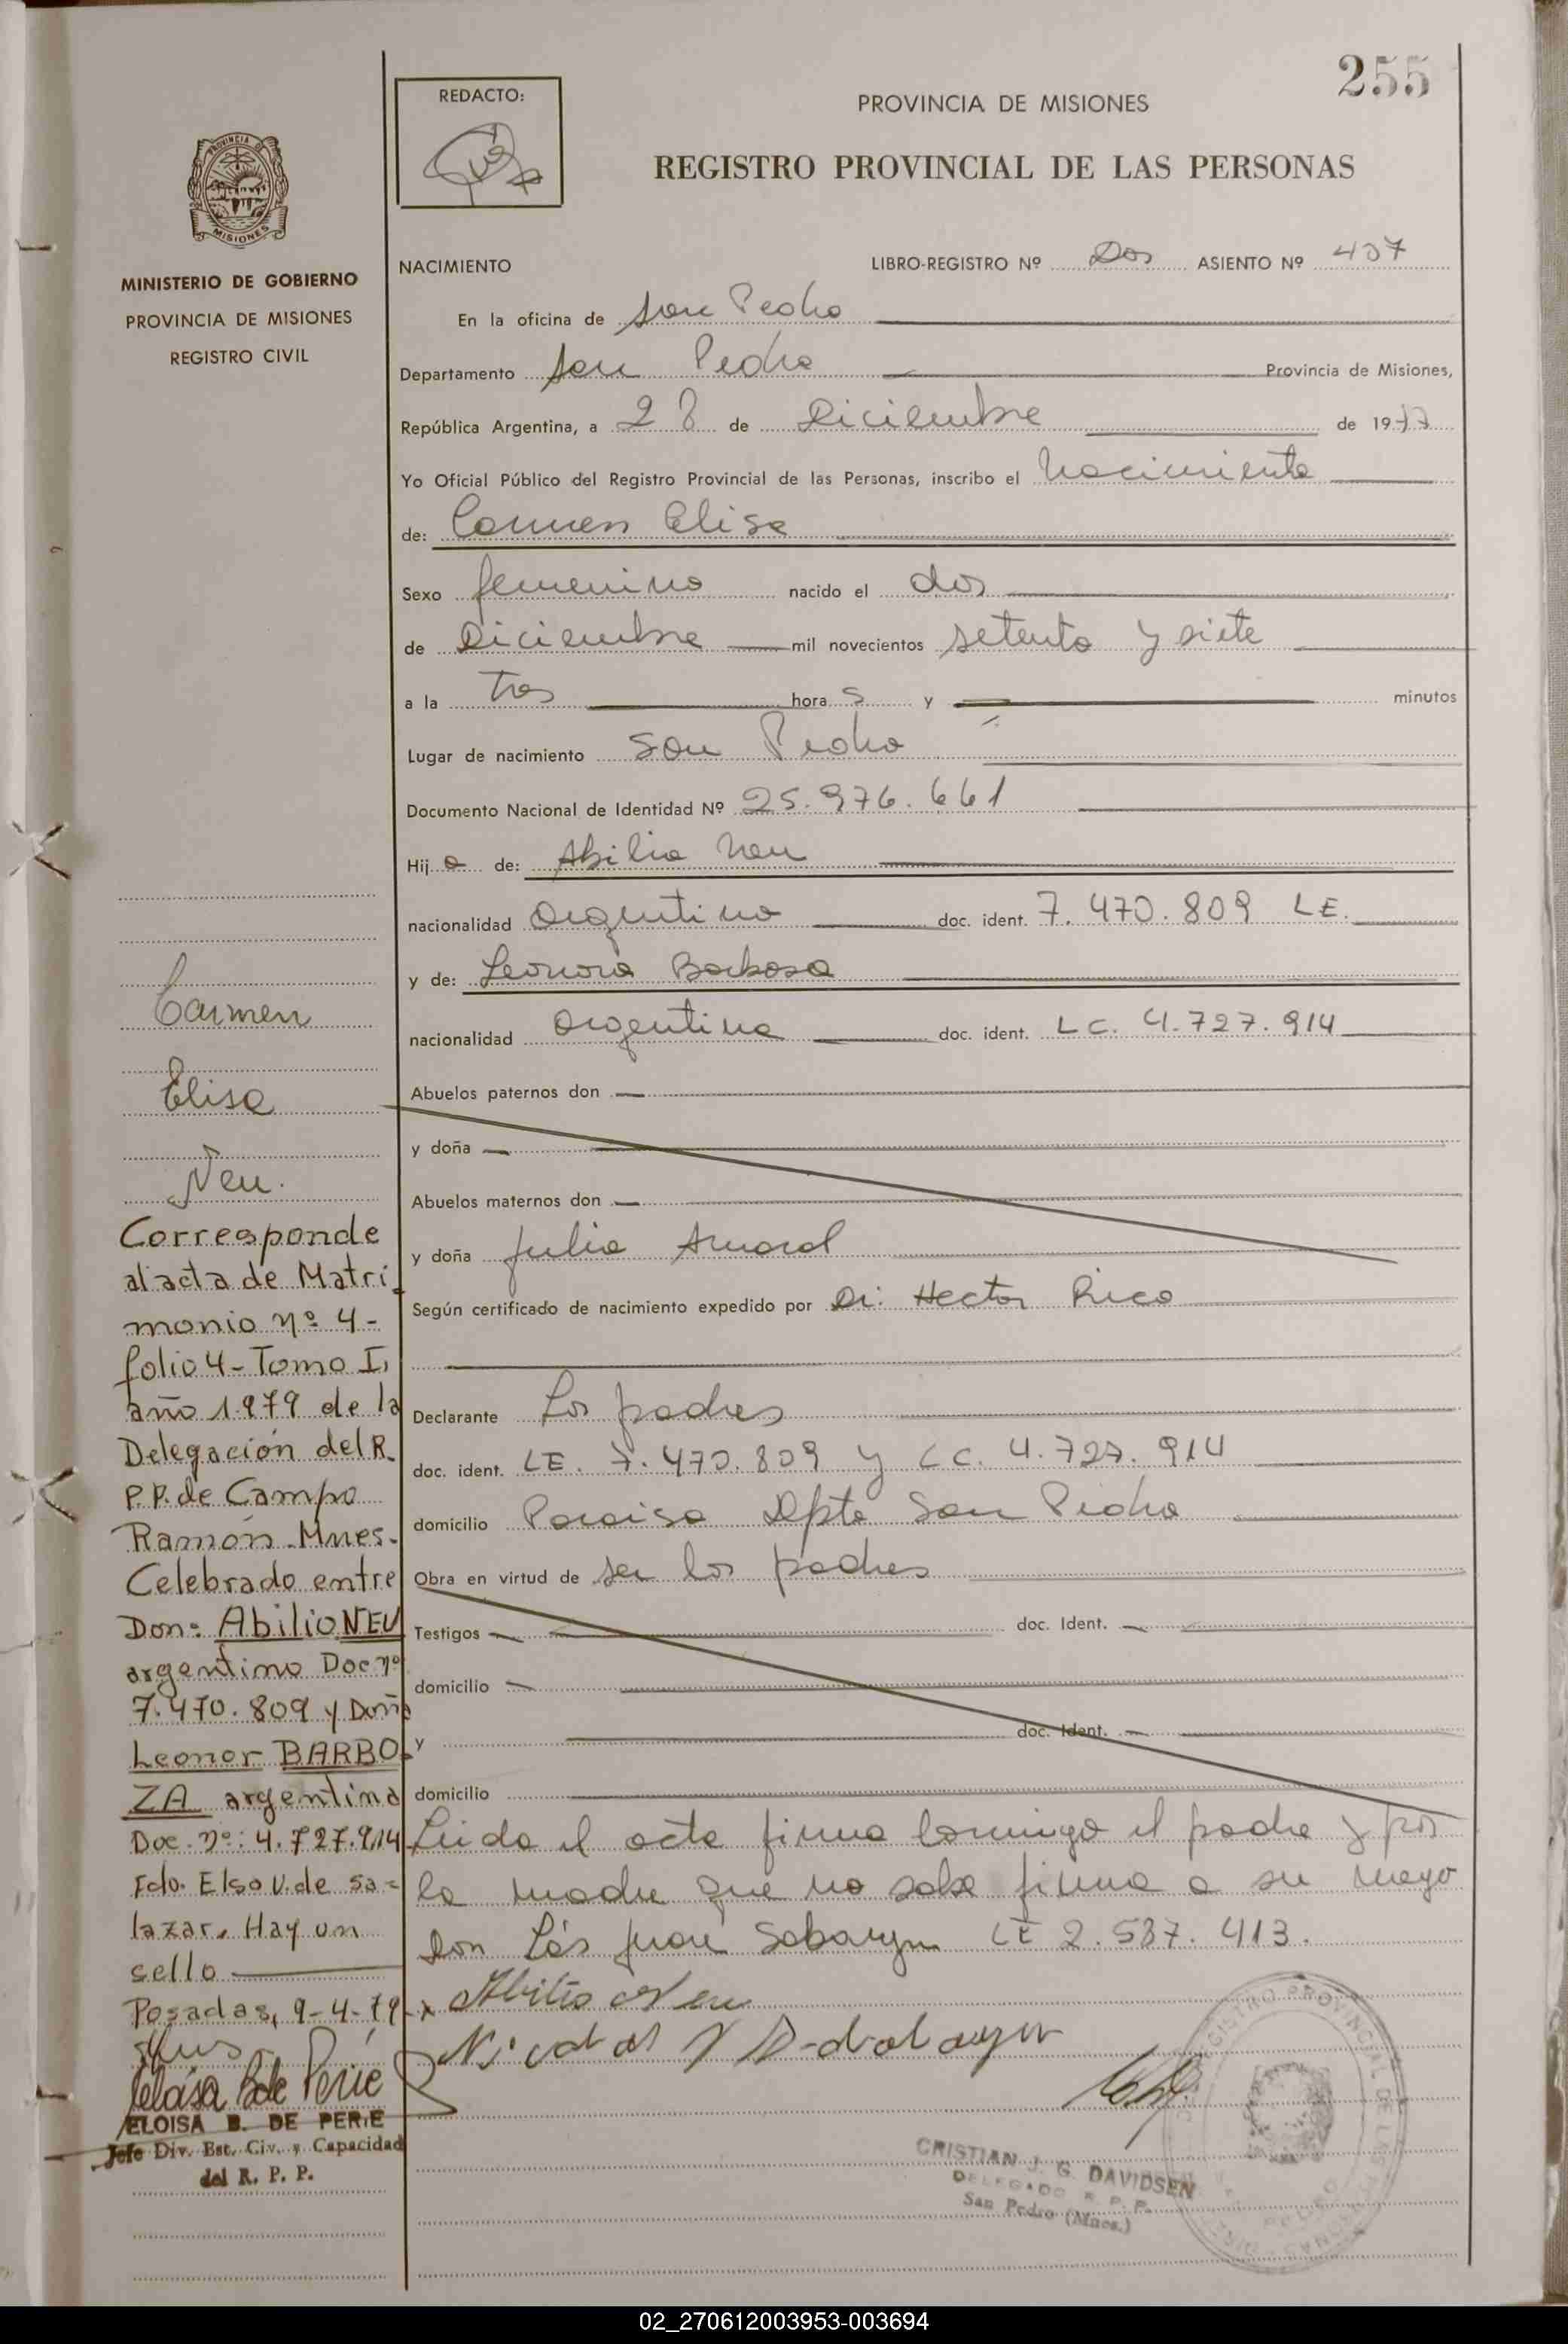 255
REDACTO:
PROVINCIA DE MISIONES
REGISTRO PROVINCIAL DE LAS PERSONAS
PROVINCIA D MISIONES
MINISTERIO DE GOBIERNO
PROVINCIA DE MISIONES
REGISTRO CIVIL
NACIMIENTO LIBRO-REGISTRO Nº Dos ASIENTO Nº 407
En la oficina de San Pedro
Departamento San Pedro Provincia de Misiones,
República Argentina, a 28 de Diciembre de 1977
Yo Oficial Público del Registro Provincial de las Personas, inscribo el Nacimiento
de: Carmen Elisa
Sexo femenino nacido el dos
de Diciembre mil novecientos setenta y siete
a la tres hora s y minutos
Lugar de nacimiento San Pedro
Documento Nacional de Identidad Nº 25.976.661
Hij a de: Abilio Neu
nacionalidad argentino doc. ident. 7.470.809 LE.
y de: Leonora Barbosa
nacionalidad argentina doc. ident. LC. 4.727.914
Abuelos paternos don
y doña
Abuelos maternos don
y doña Julia Amaral
Según certificado de nacimiento expedido por Dr. Hector Rico
Declarante Los padres
doc. ident. LE. 7.470.809 y LC. 4.727.914
domicilio Paraiso Dpto San Pedro
Obra en virtud de ser los padres
Testigos doc. Ident.
domicilio
y doc. Ident.
domicilio
Leida el acta firma conmigo el padre y por
la madre que no sabe firma a su ruego
Don Juan LE 2.587.413.
Abilio Neu
CRISTIAN J. G. DAVIDSEN
DELEGADO R. P. P.
San Pedro (Mnes.)
REGISTRO PROVINCIAL DE LAS PERSONAS
Carmen
Elisa
Neu.
Corresponde
al acta de Matri
monio nº 4-
folio 4-Tomo I,
año 1979 de la
Delegación del R.
P.P. de Campo
Ramón-Mnes-
Celebrado entre
Don: Abilio NEU
argentino Doc nº
7.470.809 y Doña
Leonor BARBO
ZA argentina
Doc. nº: 4.727.914
Fdo. Elsa V. de Sa-
lazar. Hay un
sello
Posadas, 9-4-79-
ELOISA B. DE PERIE
Jefe Div. Est. Civ. y Capacidad
del R. P. P.
02_270612003953-003694